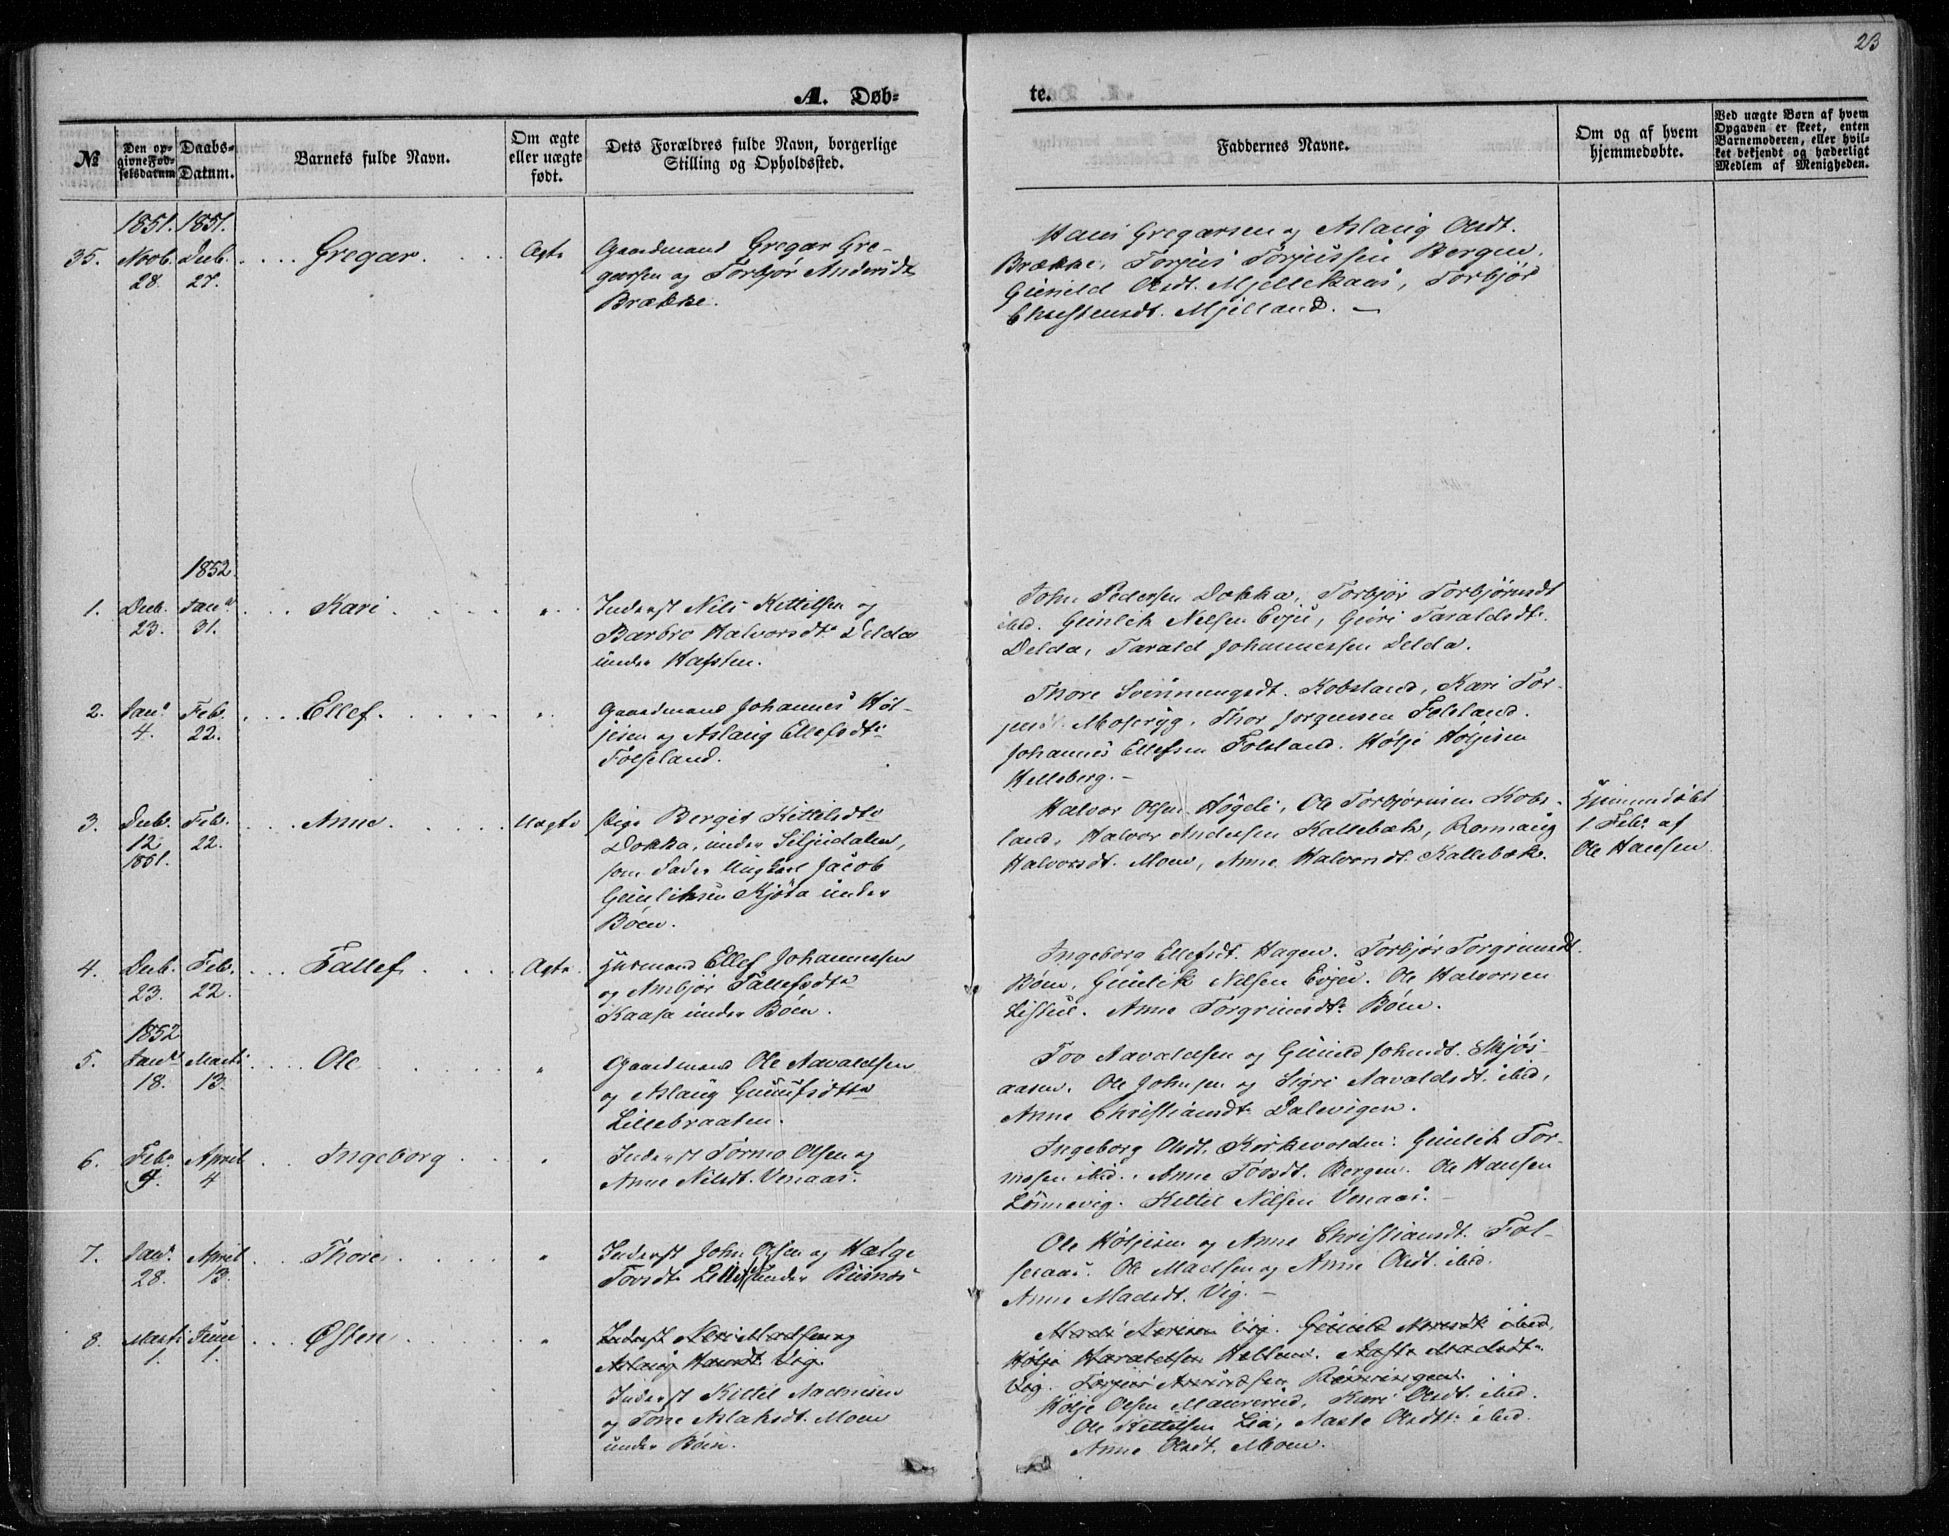 23
A. Døb-
te.
№
Den op-
givne Fød-
selsdatum
Daabs-
Datum.
Barnets fulde Navn.
Om ægte
eller uægte
født.
Dets Forældres fulde Navn, borgerlige
Stilling og Opholdssted.
Faddernes Navne.
Om og af hvem
hjemmedøbte.
Ved uægte Børn af hvem
Opgaven er skeet, enten
Barnemoderen, eller hvil-
ket bekjendt og hæderligt
Medlem af Menigheden.
1851. 1851.
35. Novb. 28. Decb. 27. Gregar. Ægte
Gaardmand Gregar Gre-
garsen og Torbjør Andersdt
Brække.
Hans Gregarsen og Aslaug Olsdt.
Brække, Torjus Torjussen Bergen,
Gunild Olsdt. Mjellekaas, Torbjør
Christensdt. Mjelland. —
1852.
1. Decb. 23. Janu. 31. Kari "
Inderst Nils Kittilsen og
Barbro Halvorsdt. Delda
under Hafsten.
John Pedersen Dokka, Torbjør Torbjørnsdt
ibid. Gunleik Nilsen Evju, Gùri Taraldsdt.
Delda, Tarald Johannessen Delda.
2. Janu. 4. Feb. 22. Ellef. "
Gaardmand Johannes Høl-
jesen og Aslaug Ellefsdt.
Folseland.
Thore Svenningsdt. Kobsland, Kari Tor-
Moseryg, Thor Jorgensen Folsland.
Johannes Ellefsen Folsland. Hølje Høljesen
Helleberg. —
3. Decb. 12 1851. Feb. 22. Anne Uægte
Pige Bergit Kittilsdt.
Dokka, under Siljudalen,
som Fader Ungkarl Jacob
Gunleiksen Kjøta under
Bøen.
Halvor Olsen Høgeli, Ole Torbjørnsen Kobs-
land, Halvor Andersen Kallebæk, Ronnaug
Halvorsdt. Moen, Anne Halvorsdt. Kallebæk.
Hjemmedøbt
1 Feb. af
Ole Hansen
4. Decb. 23. Feb. 22. Tallef. Ægte
Huusmand Ellef Johannessen
og Anbjør Tallefsdt.
Kaasa under Bøen.
Ingeborg Ellefsdt. Hagen. Torbjør Torgrimsdt.
Bøen, Gunleik Nilsen Evju. Ole Halvorsen
Listul. Anne Torgrimsdt. Bøen.
1852
5. Janu. 18. Marts 13. Ole "
Gaardmand Ole Aavaldsen
og Aslaug Gunufsdtr.
Lillebraaten.
Tov Aavaldsen og Gunild Johnsdt. Skjøs-
aasen. Ole Johnsen og Sigri Aavaldsdt. ibid,
Anne Christiansdt. Dalevigen.
6. Feb. 7. April 4 Ingeborg "
Inderst Tormo Olsen og
Anne Nilsdt. Venaas.
Ingeborg Olsdt. Kirkevolden. Gunleik Tor-
mosen ibid. Anne Tovsdt. Bergen. Ole Hansen
Lønnevig. Kittil Nilsen Venaas. —
7. Janu. 28. April 13. Thore "
Inderst John Olsen og Hæge
Tovsdt. under Busnæs
Ole Høljesen og Anne Christiansdt. Fol-
seraas. Ole Madsen og Anne Olsdt. ibid.
Anne Madsdt. Vig. —
8. Marts 1. Juni 1. Østen "
Inderst Neri Madsen og
Aslaug Hansdt. Vig
Inderst Kittil Aadnesen
og Tone Aslaksdt. Moen
under Bøen.
Mads Nerisen Vig. Gunild Nerisdt ibid,
Hølje Haraldsen Helland. Aaste Madsdt.
Vig. Torjus
Hølje Olsen Kari Olsdt. ibid.
Ole Kittilsen Lia, Aaste Olsdt. ibid.
Anne Olsdt. Moen.